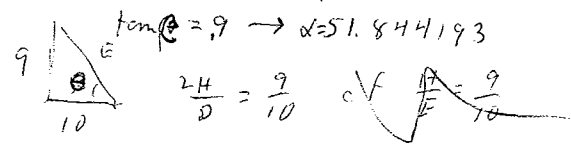 tan θ = .9 → α=51.844193
9 E
θ
10
2H/D = 9/10 of H/E = 9/10